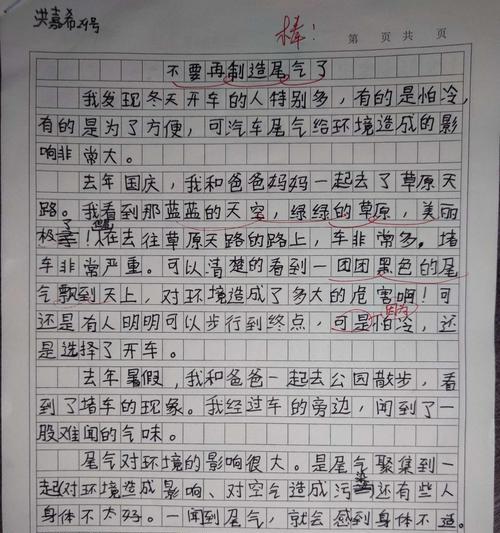 洪嘉希29号
棒!
第 页 共 页
不要再制造尾气了
我发现冬天开车的人特别多，有的是怕冷，
有的是为了方便，可汽车尾气给环境造成的影
响非常大。
去年国庆，我和爸爸妈妈一起去了草原天
路。我看到那蓝蓝的天空，绿绿的草原，美丽
极了！但是在去往草原天路的路上，车非常多。堵
车非常严重。可以清楚的看到一团团黑色的尾
气飘到天上，对环境造成了多大的危害啊！可
还是有人明明可以步行到终点，可是因为怕冷，还
是选择了开车。
去年暑假，我和爸爸一起去公园散步，看
到了堵车的现象。我经过车的旁边，闻到了一
股难闻的气味。
尾气对环境的影响很大。是尾气聚集到一
起对环境造成影响、对空气造成污染还有些人
身体不太好。一闻到尾气，就会感到身体不适。